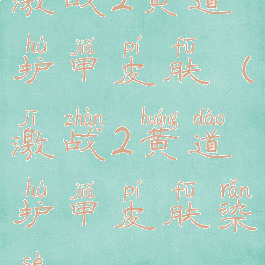 激战2黄道
hù jiǎ pí fū
护甲皮肤(
jī zhàn huáng dào
激战2黄道
hù jiǎ pí fū rǎn
护甲皮肤染
sè